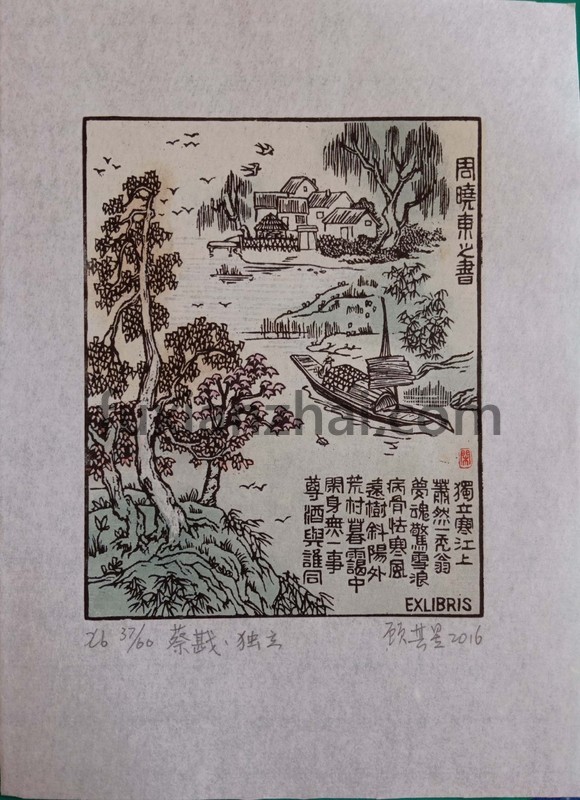 周曉東之書
獨立寒江上
蕭然一禿翁
夢魂驚雪浪
病骨怯寒風
遠樹斜陽外
荒村暮靄中
閑身無一事
尊酒與誰同
EXLIBRIS
X6 37/60 蔡戡·独立 顾其星 2016